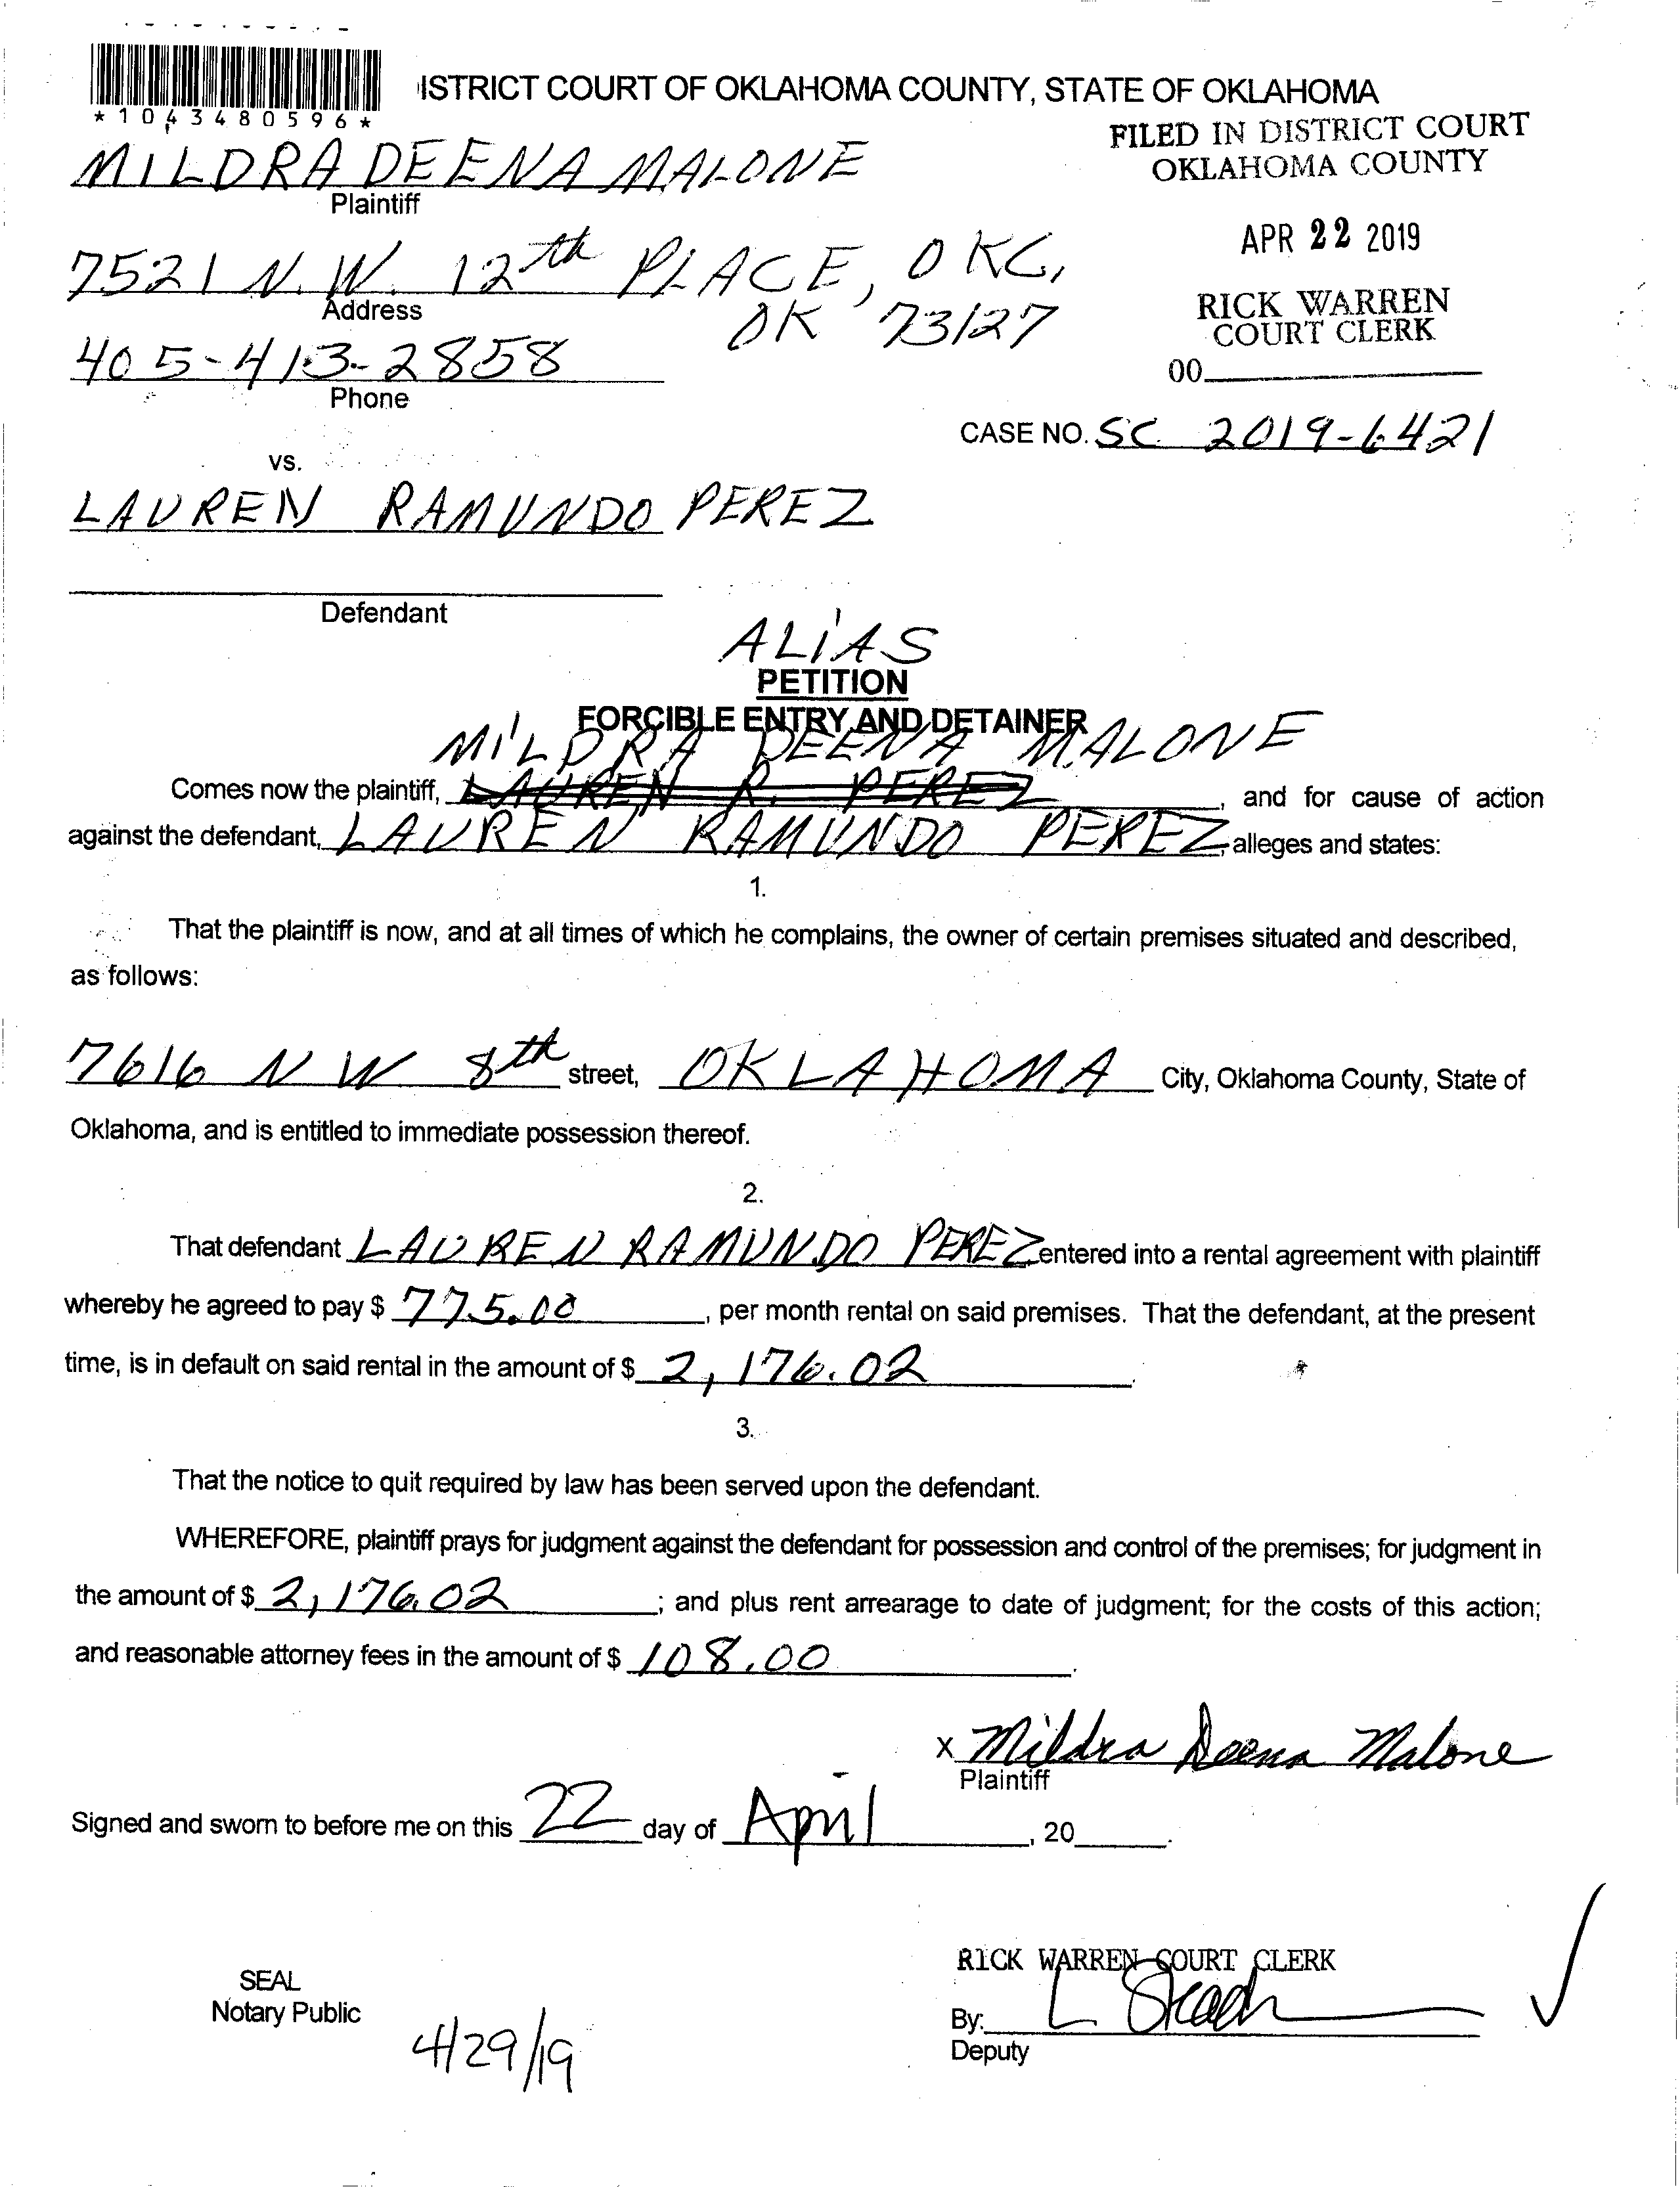 ISTRICT COURT OF OKLAHOMA COUNTY, STATE OF OKLAHOMA
*1043480596*
FILED IN DISTRICT COURT
OKLAHOMA COUNTY
MILDRA DEENA MALONE
Plaintiff
APR 22 2019
7521 N.W. 12th PLACE, OKC,
Address
OK 73127
RICK WARREN
COURT CLERK
405-413-2858
00
Phone
CASE NO. SC 2019-6421
VS.
LAUREN RAMUNDO PEREZ
Defendant
ALIAS
PETITION
FORCIBLE ENTRY AND DETAINER
MILDRA DEENA MALONE
Comes now the plaintiff, LAUREN R. PEREZ, and for cause of action
against the defendant, LAUREN RAMUNDO PEREZ, alleges and states:
1.
That the plaintiff is now, and at all times of which he complains, the owner of certain premises situated and described,
as follows:
7616 NW 8th street, OKLAHOMA City, Oklahoma County, State of
Oklahoma, and is entitled to immediate possession thereof.
2.
That defendant LAUREN RAMUNDO PEREZ entered into a rental agreement with plaintiff
whereby he agreed to pay $ 775.00, per month rental on said premises. That the defendant, at the present
time, is in default on said rental in the amount of $ 2,176.02.
3.
That the notice to quit required by law has been served upon the defendant.
WHEREFORE, plaintiff prays for judgment against the defendant for possession and control of the premises; for judgment in
the amount of $ 2,176.02; and plus rent arrearage to date of judgment; for the costs of this action;
and reasonable attorney fees in the amount of $ 108.00.
X Mildra Deena Malone
Plaintiff
Signed and sworn to before me on this 22 day of April, 20 .
RICK WARREN COURT CLERK
SEAL
Notary Public
By: L
Deputy
4/29/19